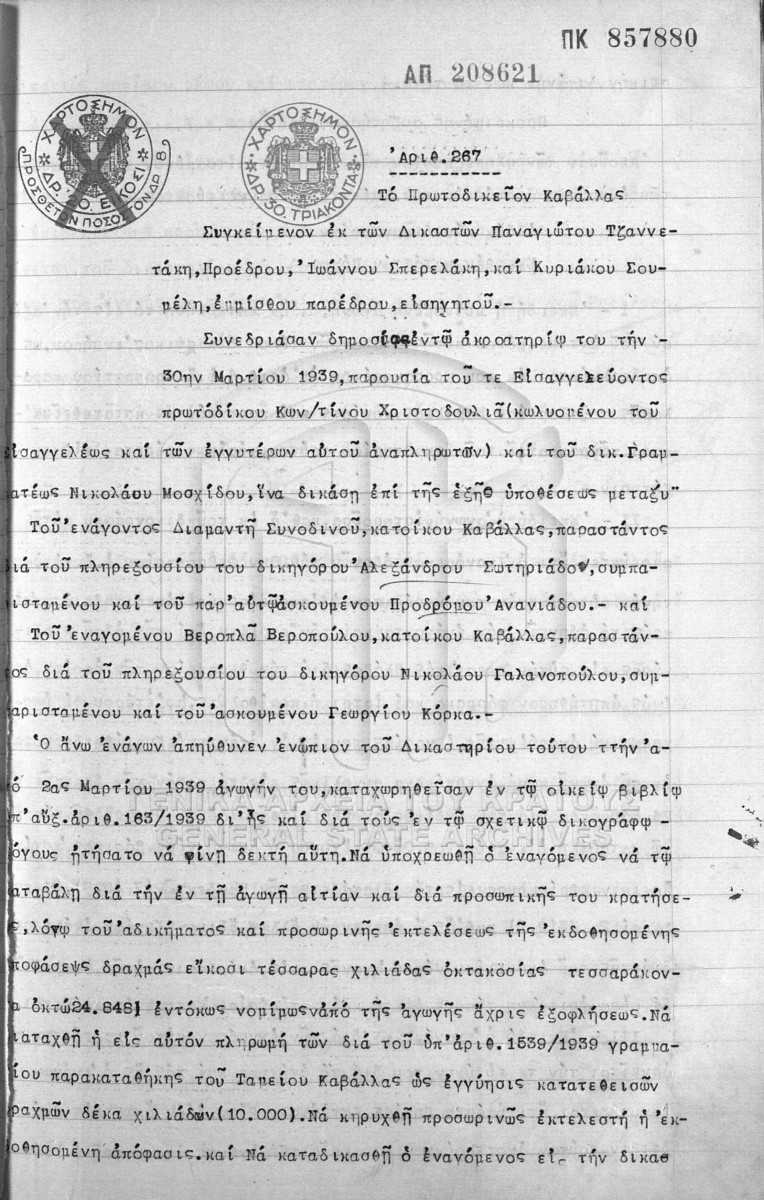 ΠΚ 857880
ΑΠ 208621
ΧΑΡΤΟΣΗΜΟΝ
ΔΡ. 20. ΕΙΚΟΣΙ
ΠΡΟΣΘΕΤΟΝ ΠΟΣΟΣΤΟΝ ΔΡ. 8.
ΧΑΡΤΟΣΗΜΟΝ
ΔΡ. 30. ΤΡΙΑΚΟΝΤΑ
Ἀριθ.267
Τό Πρωτοδικεῖον Καβάλλας
Συγκείμενον ἐκ τῶν Δικαστῶν Παναγιώτου Τζαννε-
τάκη,Προέδρου,Ἰωάννου Σπερελάκη,καί Κυριάκου Σου-
μέλη,ἐμμίσθου παρέδρου,εἰσηγητοῦ.-
Συνεδριάσαν ἐντῷ ἀκροατηρίῳ του τήν -
30ην Μαρτίου 1939,παρουσία τοῦ τε Εἰσαγγελεύοντος
πρωτόδίκου Κων/τίνου Χριστοδουλιᾶ(κωλυομένου τοῦ
εἰσαγγελέως καί τῶν ἐγγυτέρων αὐτοῦ ἀναπληρωτῶν) καί τοῦ δικ.Γραμ-
ματέως Νικολάου Μοσχίδου,ἵνα δικάσῃ ἐπί τῆς ἑξῆς ὑποθέσεως μεταξύ"
Τοῦ ἐνάγοντος Διαμαντῆ Συνοδινοῦ,κατοίκου Καβάλλας,παραστάντος
ιά τοῦ πληρεξουσίου του δικηγόρου Ἀλεξάνδρου Σωτηριάδου,συμπα-
ισταμένου καί τοῦ παρ'αὐτῷ ἀσκουμένου Προδρόμου Ἀνανιάδου.- καί
Τοῦ ἐναγομένου Βεροπλᾶ Βεροπούλου,κατοίκου Καβάλλας,παραστάν-
τος διά τοῦ πληρεξουσίου του δικηγόρου Νικολάου Γαλανοπούλου,συμ-
παρισταμένου καί τοῦ ἀσκουμένου Γεωργίου Κόρκα.-
Ὁ ἄνω ἐνάγων ἀπηύθυνεν ἐνώπιον τοῦ Δικαστηρίου τούτου ττήν ἀ-
ό 2ας Μαρτίου 1939 ἀγωγήν του,καταχωρηθεῖσαν ἐν τῷ οἰκείῳ βιβλίῳ
ΓΕΝΙΚΑ ΑΡΧΕΙΑ ΤΟΥ ΚΡΑΤΟΥΣ
π'αὔξ.ἀριθ.163/1939 δι'ἧς καί διά τούς ἐν τῷ σχετικῷ δικογράφῳ -
GENERAL STATE ARCHIVES
όγους ᾐτήσατο νά γίνῃ δεκτή αὕτη.Νά ὑποχρεωθῇ ὁ ἐναγόμενος νά τῷ
αταβάλῃ διά τήν ἐν τῇ ἀγωγῇ αἰτίαν καί διά προσωπικῆς του κρατήσε-
ς,λόγῳ τοῦ ἀδικήματος καί προσωρινῆς ἐκτελέσεως τῆς ἐκδοθησομένης
ποφάσεψς δραχμάς εἴκοσι τέσσαρας χιλιάδας ὀκτακοσίας τεσσαράκον-
α ὀκτώ24.848) ἐντόκως νομίμως ἀπό τῆς ἀγωγῆς ἄχρις ἐξοφλήσεως.Νά
ιαταχθῇ ἡ εἰς αὐτόν πληρωμή τῶν διά τοῦ ὑπ'ἀριθ.1539/1939 γραμμα-
ίου παρακαταθήκης τοῦ Ταμείου Καβάλλας ὡς ἐγγύησις κατατεθεισῶν
ραχμῶν δέκα χιλιάδων(10.000).Νά κηρυχθῇ προσωρινῶς ἐκτελεστή ἡ ἐκ-
οθησομένη ἀπόφασις.καί Νά καταδικασθῇ ὁ ἐναγόμενος εἰς τήν δικασ